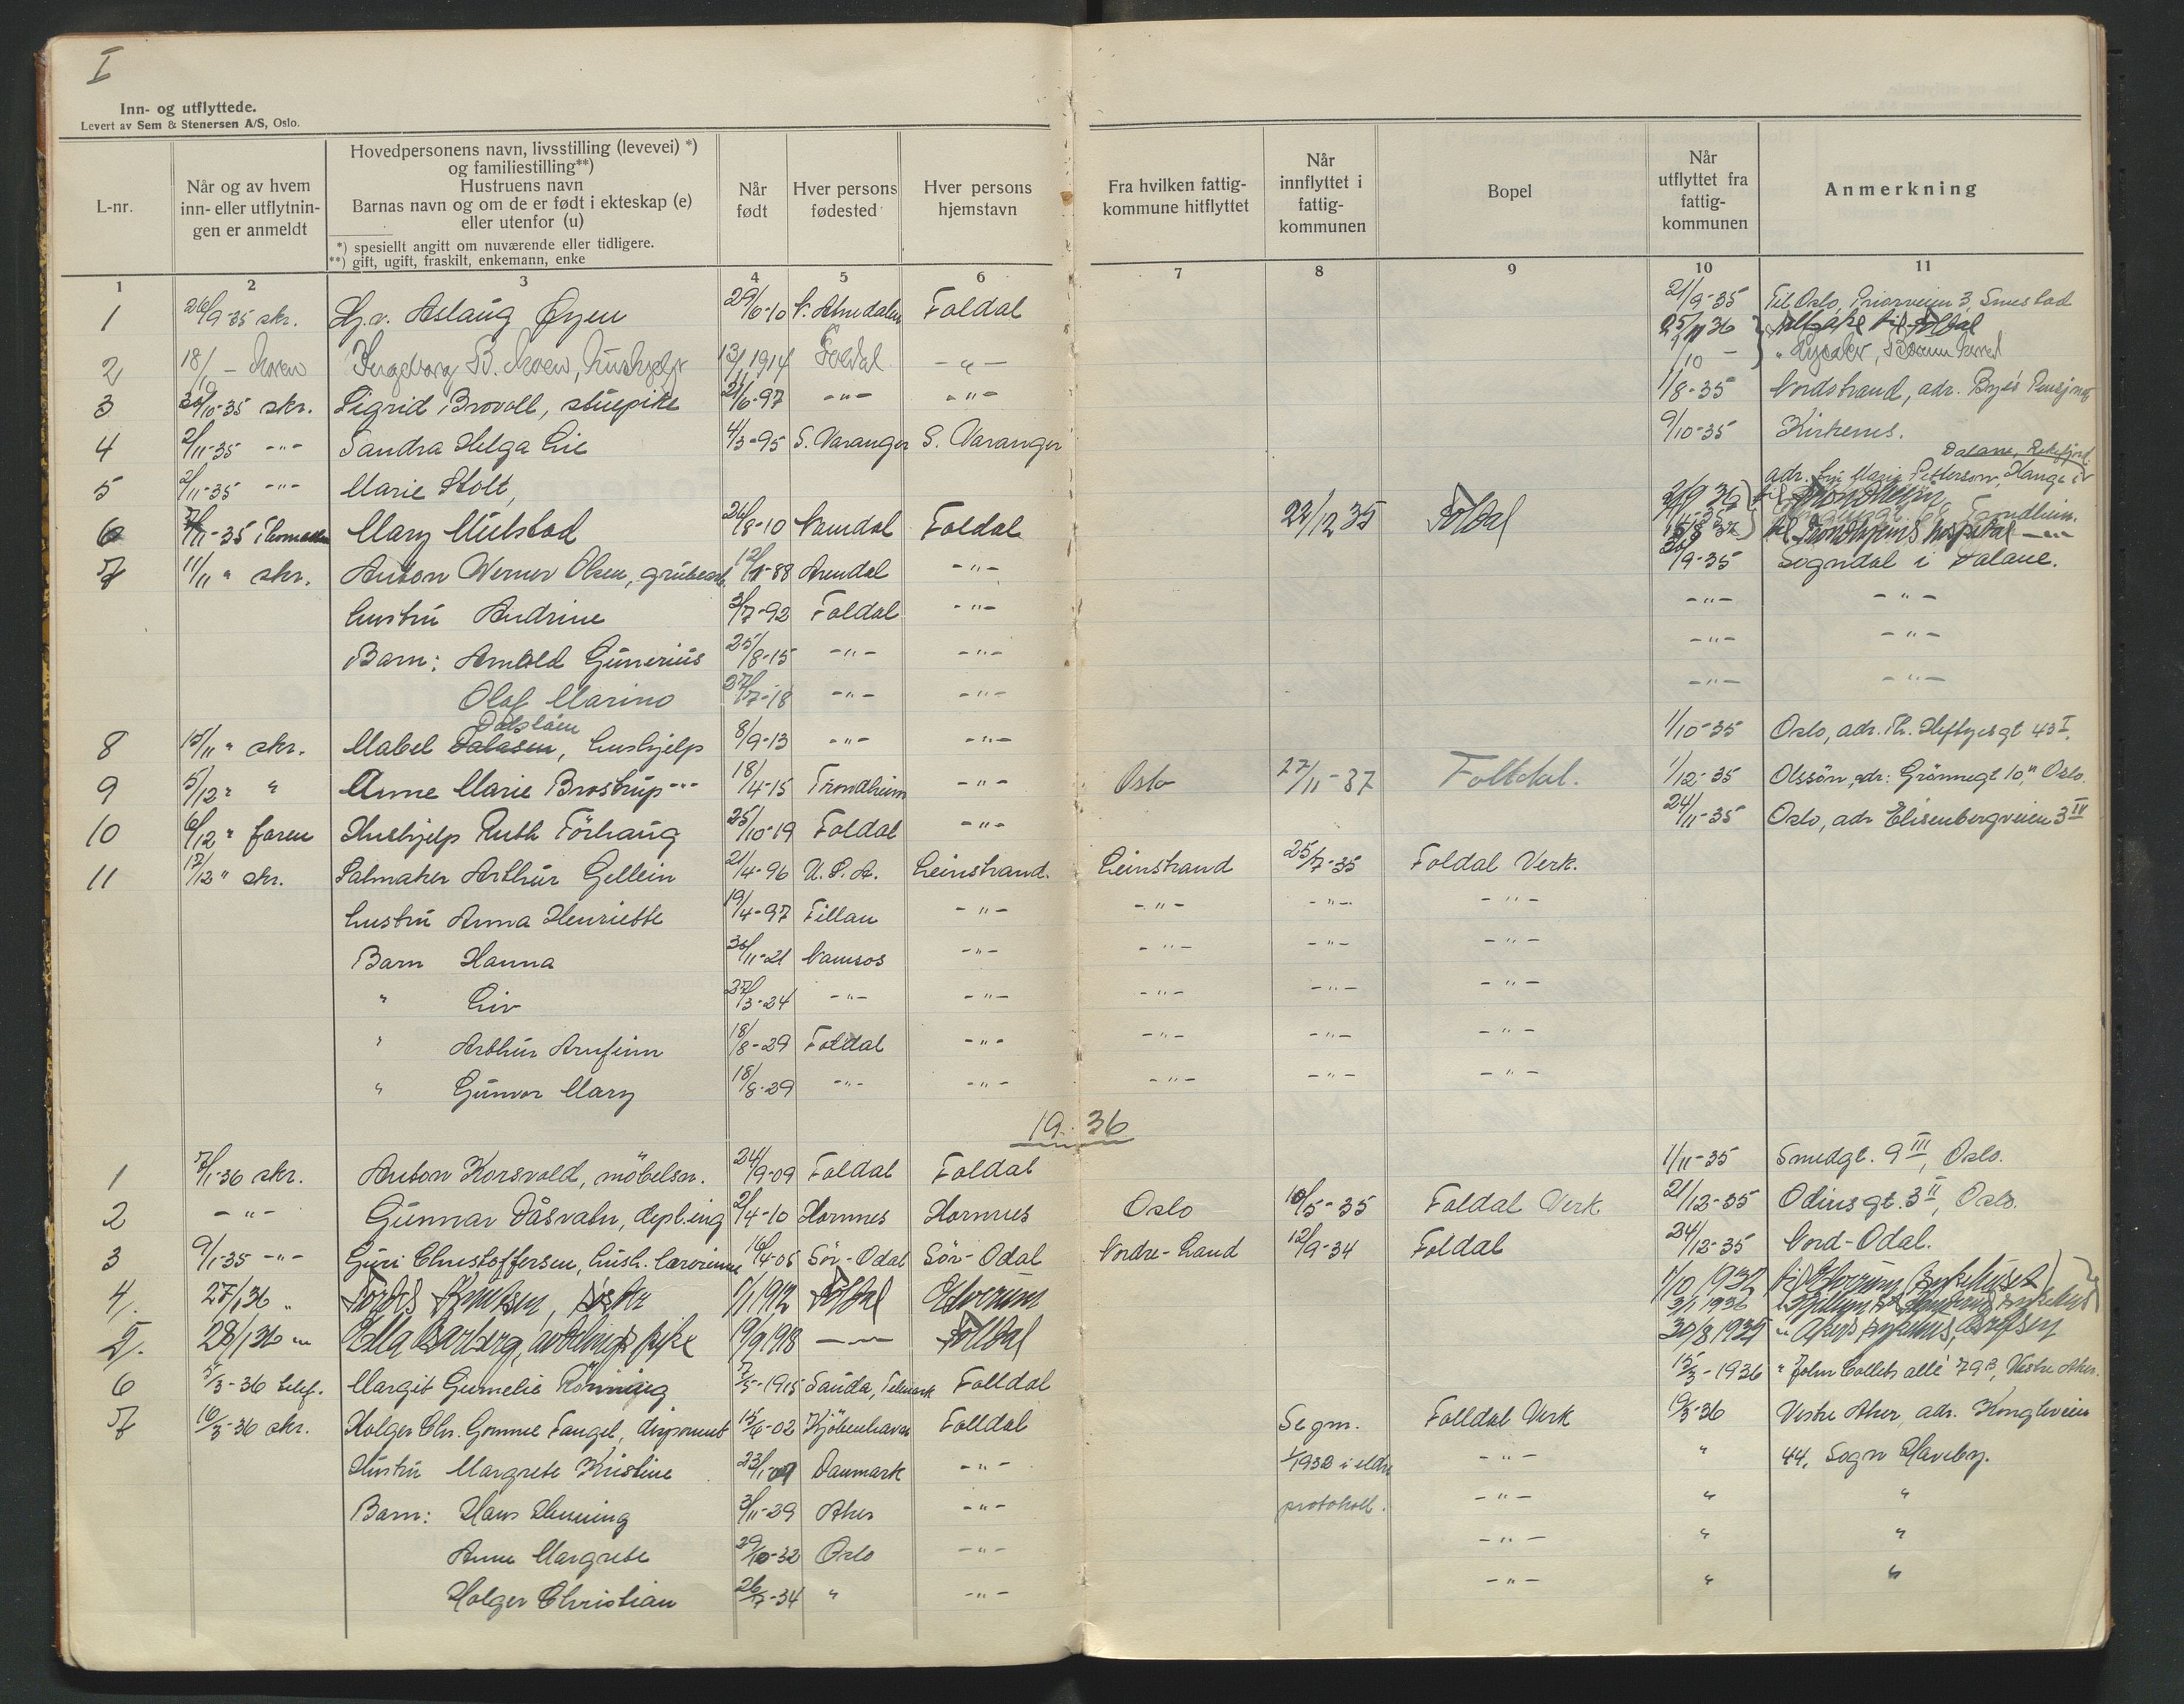 I
Inn- og utflyttede.
Levert av Sem & Stenersen A/S, Oslo.
L-nr.
Når og av hvem inn- eller utflytnin- gen er anmeldt
Hovedpersonens navn, livsstilling (levevei) *)
og familiestilling**)
Hustruens navn
Barnas navn og om de er født i ekteskap (e)
eller utenfor (u)
*) spesiellt angitt om nuværende eller tidligere.
**) gift, ugift, fraskilt, enkemann, enke
Når født
Hver persons fødested
Hver persons hjemstavn
Fra hvilken fattig- kommune hitflyttet
Når innflyttet i fattig- kommunen
Bopel
Når utflyttet fra fattig- kommunen
Anmerkning
1 2 3 4 5 6 7 8 9 10 11
1 26/9-35 skr. Aslaug Øyen 29/6-10 Foldal 21/9-35 Til Oslo, Priorveien 3, Smestad
25/11 36
2 18/ - Moren Ingeborg B. Moen, hushjelp 13/1 1914 Foldal - " - 1/10 -
3 30/10-35 skr. Sigrid Brovoll, stuepike 21/6-97 - " - - " - 1/8-35 Nordstrand, adr. Byes Pensjonat
4 2/11-35 - " - Sandra Helga Lie 4/3-95 S. Varanger S. Varanger 9/10-35 Kirkenes.
5 2/11-35 - " - Marie Stolt, Dalane, Rekefjord.
6 7/11-35 Thomassen Mary Mulstad 26/8-10 Namdal Foldal 22/12 35 Foldal
7 11/11 " skr. Anton Werner Olsen, grubearb. 12/1-88 Arendal - " - 30/9-35 Sogndal i Dalane.
hustru Andrine 3/7-92 Foldal - " - - " - - " -
Barn: Arnold Gunerius 25/8-15 - " - - " - - " - - " -
Olaf Marino 27/7-18 - " - - " - - " - - " -
Dalslåen
8 15/11 " skr. Mabel Dalasen, hushjelp 8/9-13 - " - - " - 1/10-35 Oslo, adr. Th. Heftyesgt 43 I.
9 5/12 " " Anne Marie Brostrup - " - 18/4-15 Trondheim - " - Oslo 27/11-37 Folldal. 1/12-35 Olssön, adr: Grönnegt 10, Oslo.
10 6/12 " faren Hushjelp Ruth Törhaug 25/10-19 Foldal - " - 24/11-35 Oslo, adr Elisenbergveien 3 III
11 17/12 " skr. Salmaker Arthur Gellein 21/4-96 U.S.A. Leinstrand. Leinstrand 25/7-35 Foldal Verk.
hustru Anna Henriette 19/4-97 Fillan - " - - " - - " - - " -
Barn Hanna 30/11-21 Namsos - " - - " - - " - - " -
" Liv 27/3-24 - " - - " - - " - - " - - " -
" Arthur Arnfinn 18/8-29 Foldal - " - - " - - " - - " -
" Gunvor Mary 18/8-29 - " - - " - - " - - " - - " -
1936
1 7/1-36 skr. Anton Korsvold, möbelsn. 24/9-09 Foldal Foldal 1/11-35 Smedgt. 9 III, Oslo.
2 - " - Gunnar Dåsvatn, depl.ing 2/4-10 Hornnes Hornnes Oslo 10/5-35 Foldal Verk 21/12-35 Odinsgt. 3 II, Oslo.
3 9/1-35 - " - Guri Christoffersen, hush. lærerinne 16/4-05 Sör-Odal Sör-Odal Nordre-Land 12/9-34 Foldal 24/12-35 Nord-Odal.
4. 27/1 36 " Tordis Knutsen, 1/1 1912 Folldal Elverum 1/10 1932 til Elverum Sykehuset
3/1 1936
5. 28/1 36 " 19/9 1918 - " - Folldal 30/8 1935 " Akers sykehus,
6 5/3-36 telef. Margit Gunelie Rönning 7/5-1915 Sauda, Telemark Folldal 15/3-1936 " John Colletts allé 79 B, Vestre Aker.
7 16/3-36 skr. Holger Chr. Gomme Fangel, disponent 15/6-02 Kjöbenhavn Folldal Se gm. Folldal Verk 19/3-36 Vestre Aker, adr. Kongleveien
Hustru Margrete Kristine 23/1-07 Danmark - " - 1/1932 i eldre - " - " 44, Sogn Haveby.
Barn: Hans Henning 3/11-29 Aker - " - protokoll. - " - " "
Anne Margrete 29/10-32 Oslo - " - - " - " "
Holger Christian 26/7-34 " - " - - " - " "